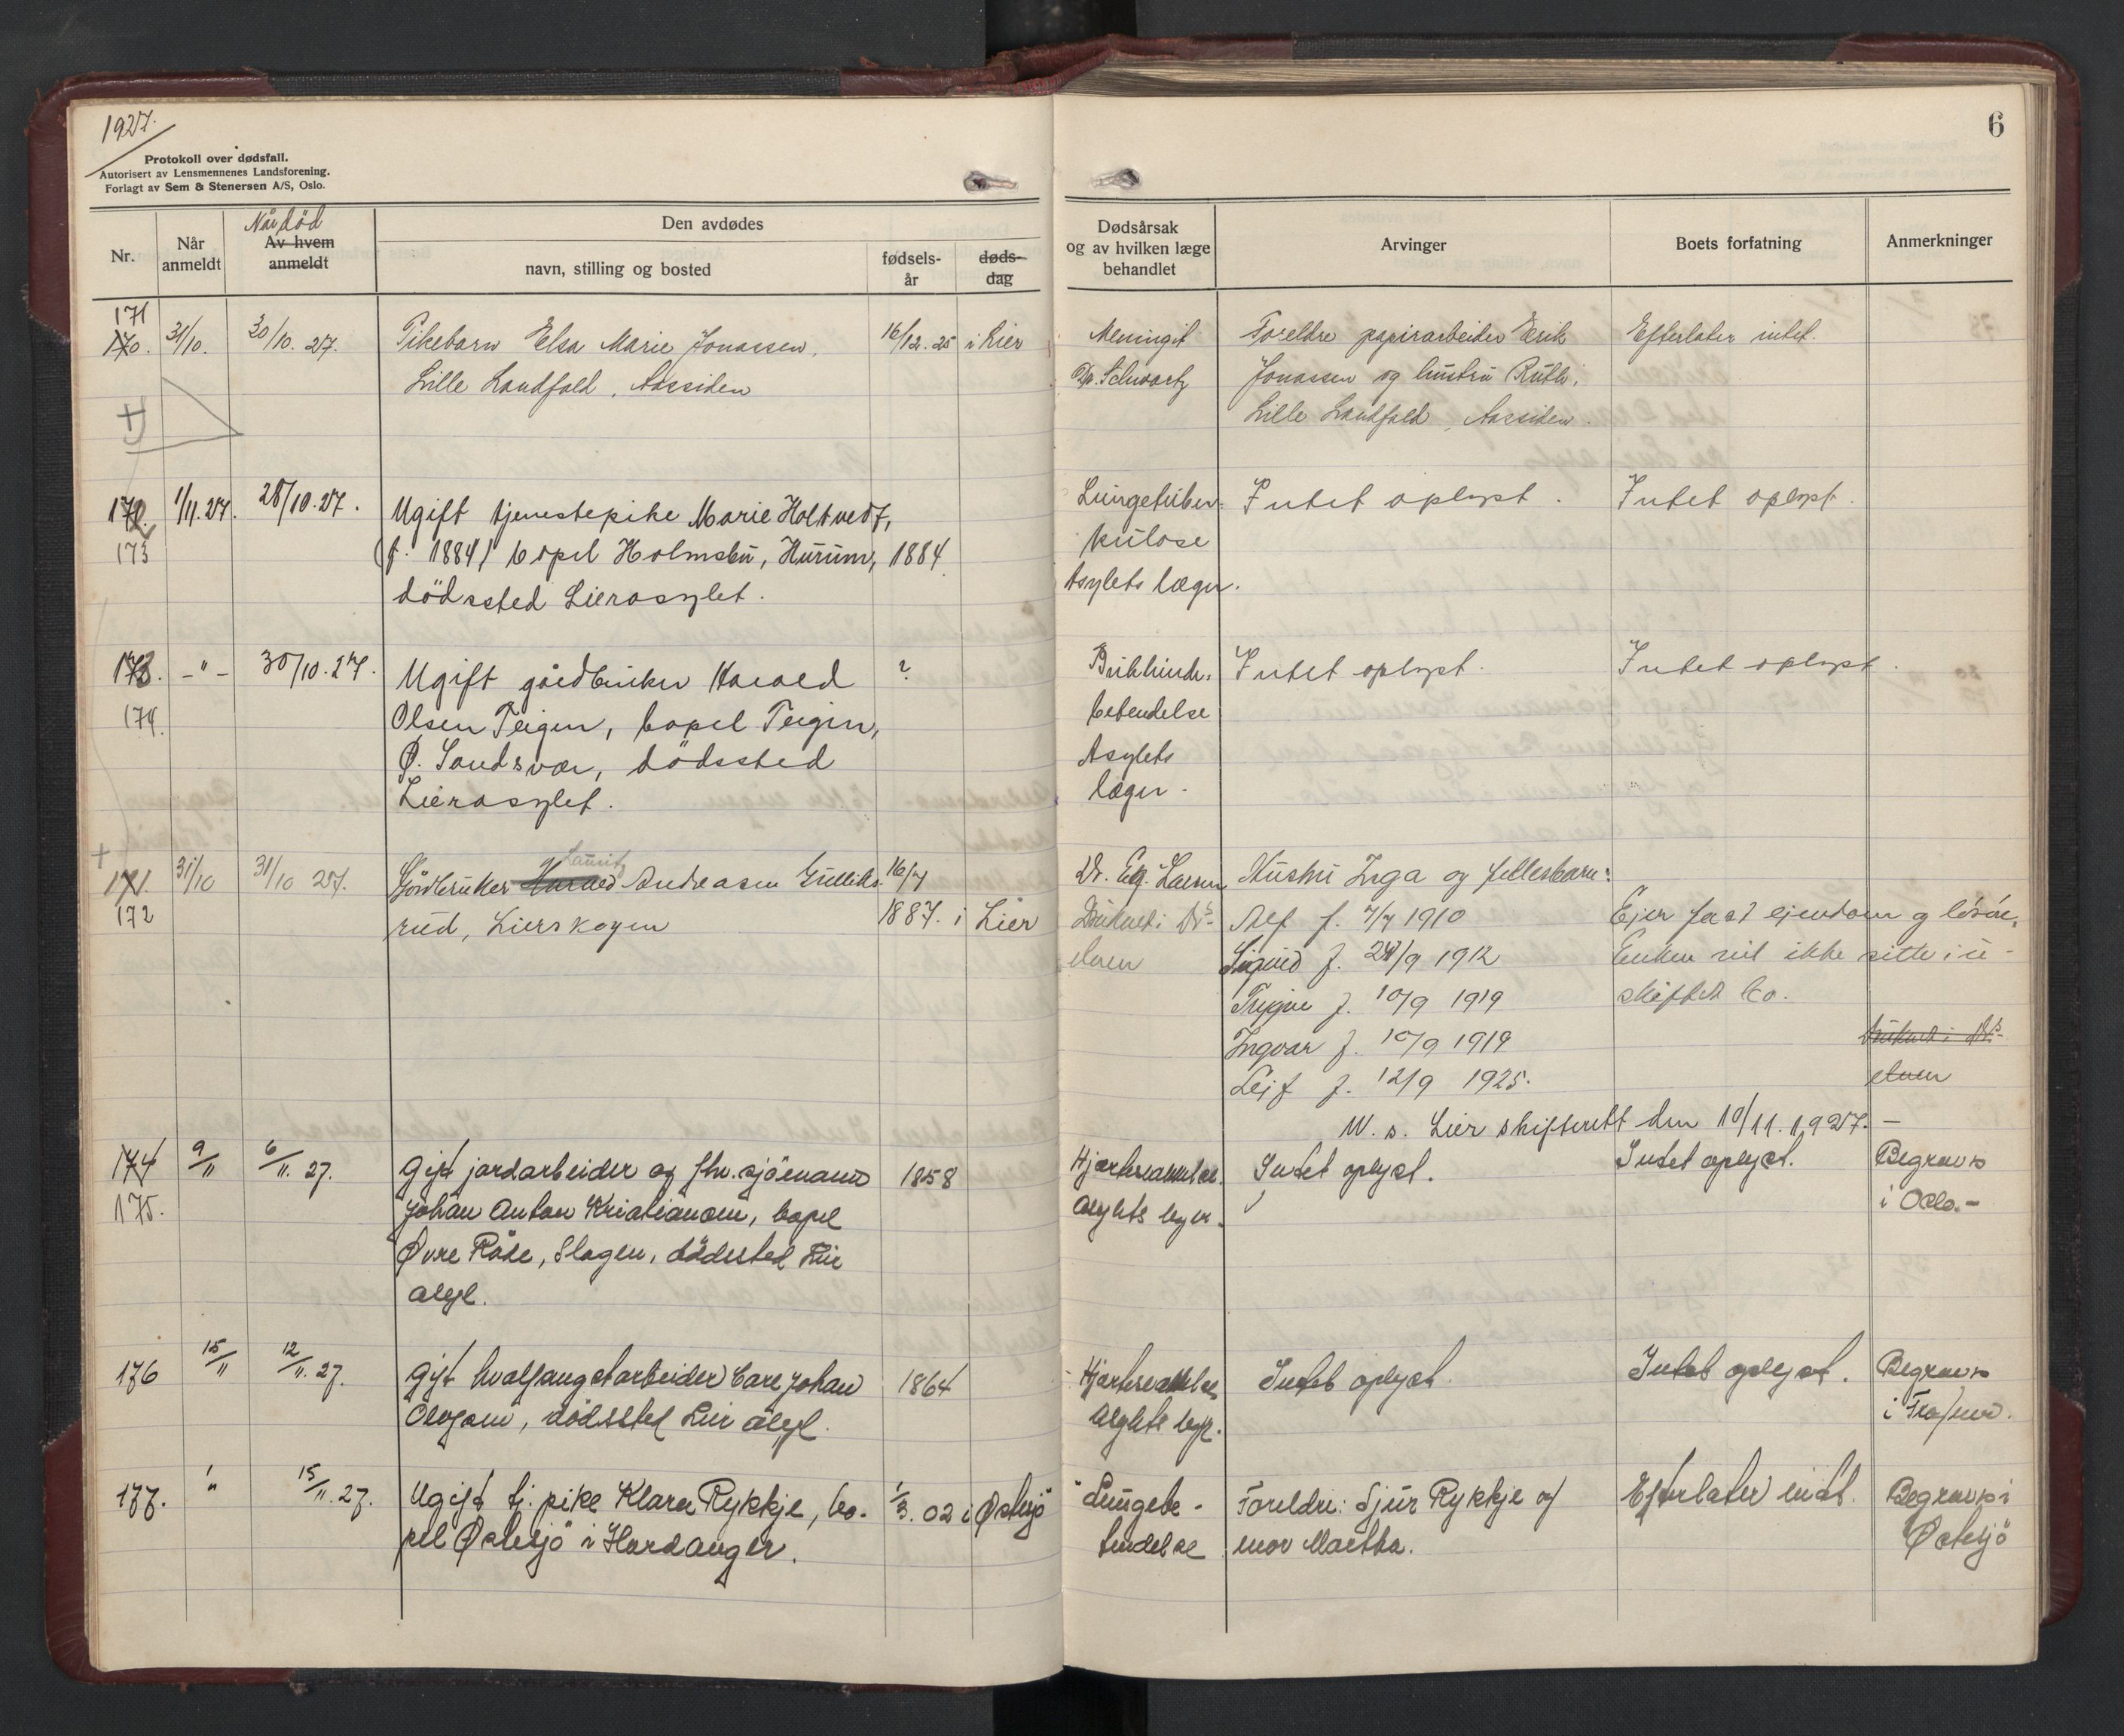 1927.
Protokoll over dødsfall.
Autorisert av Lensmennenes Landsforening.
Forlagt av Sem & Stenersen A/S, Oslo.
6
Nr.
Når anmeldt
Når död
Av hvem anmeldt
Den avdødes
navn, stilling og bosted
fødsels-år
døds-dag
Dødsårsak og av hvilken læge behandlet
Arvinger
Boets forfatning
Anmerkninger
171
170. 31/10. 30/10. 27. Pikebarn Elsa Marie Jonassen, 16/12. 25 i Lier
Lille Landfald, Aassiden
Meningit
Dr. Schwartz
Foreldre papirarbeider Erik
Jonassen og hustru Ruth,
Lille Landfald, Aassiden.
Efterlater intet.
173
1/11. 27. 28/10. 27. Ugift tjenestepike Marie Holtvedt,
(f. 1884) bopel Holmsbu, Hurum, 1884
dödssted Lierasylet.
Lungetuber-
kulose
Asylets læger.
Intet oplyst.
Intet oplyst.
173. -"- 30/10. 27. Ugift gårdbruker Harald ?
174.
Olsen Teigen, bopel Teigen,
Ø. Sandsvær, dödssted
Lierasylet.
Brikhinde-
betendelse
Asylets
læger.
Intet oplyst.
Intet oplyst.
171. 31/10 31/10 27. Gårdbruker Harald Lauritz Andreasen Gulliks- 16/7
172
rud, Lierskogen 1887. i Lier
Dr. Eg. Larsen
Druknet i Dr-
elven
Hustru Inga og fellesbarn:
Alf f. 7/7 1910
Sigurd f. 28/9 1912
Trygve f. 10/9 1919
Ingvar f. 10/9 1919
Leif f. 12/9 1925.
Ejer fast ejendom og lösöre.
Enken vil ikke sitte i u-
skiftet bo.
Druknet i Drs-
elven
M. s. Lier skifterett den 10/11. 1927. -
174 9/11 6/11. 27. Gift jardarbeider og fhv. sjömann 1858
175.
Johan Anton Kristiansen, bopel
Øvre Råde, Slagen, dödssted Lier
asyl.
Hjertelammelse.
Asylets leger.
Intet oplyst.
Intet oplyst.
Begraves
i Oslo. -
176 15/11 12/11. 27. Gift hvalfangstarbeider Carl Johan 1864
dödssted Lier asyl.
Hjertelammelse
Asylets lege.
Intet oplyst.
Intet oplyst.
Begraves
i
177. " 15/11. 27. Ugift tj. pike Klara Rykkje, bo- 1/3. 02 i Østesjö
pel Østesjö i Hardanger.
Lungebe-
tendelse
Foreldre: Sjur Rykkje og
mor Martha.
Efterlater intet.
Begraves i
Østesjö